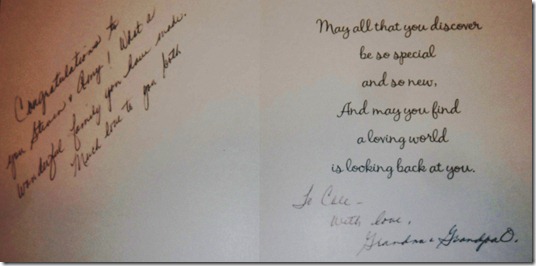 Congratulations to
you Steven & Amy! What a
wonderful family you have made.
Much love to you both
May all that you discover
be so special
and so new,
And may you find
a loving world
is looking back at you.
To Cole -
With love,
Grandma & Grandpa O.